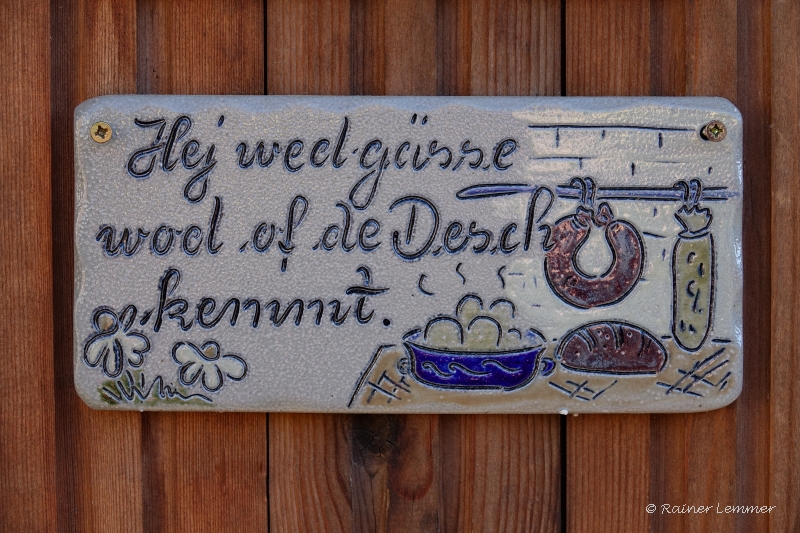 Hej wed gässe
wod of de Desch
kemmt.
© Rainer Lemmer